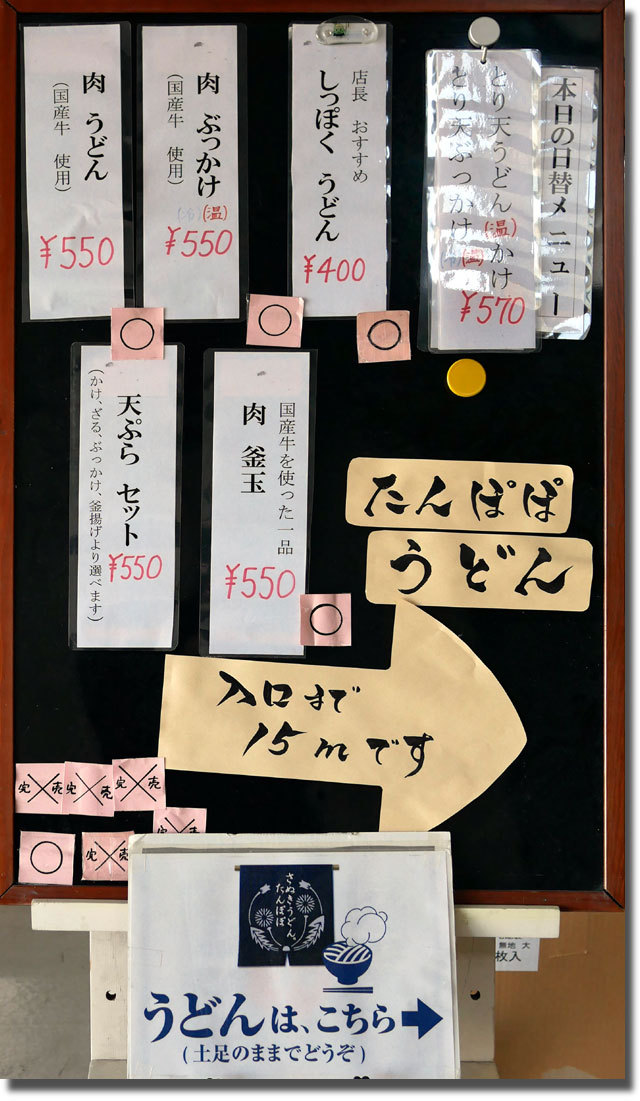 本日の日替メニュー
とり天うどん(温)かけ
とり天ぶっかけ
¥570
店長 おすすめ
しっぽく うどん
¥400
肉 ぶっかけ
(国産牛 使用)
(冷)(温)
¥550
肉 うどん
(国産牛 使用)
¥550
国産牛を使った一品
肉 釜玉
¥550
天ぷら セット
(かけ、ざる、ぶっかけ、釜揚げより選べます)
¥550
たんぽぽ
うどん
入口まで
15mです
完売
完売
完売
完売
さぬきうどん
たんぽぽ
うどんは、こちら
(土足のままでどうぞ)
無地 大
枚入